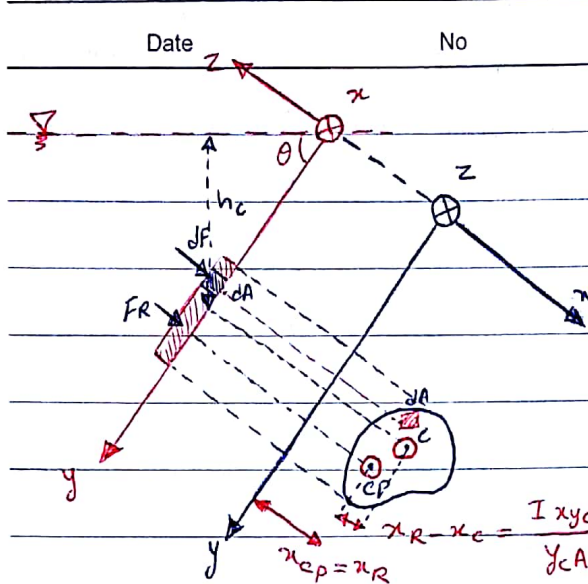 Date No
z x
θ z
hc
dF
dA
FR x
dA
C
CP
y
y xCP = xR xR - xC = Ixyc / ycA